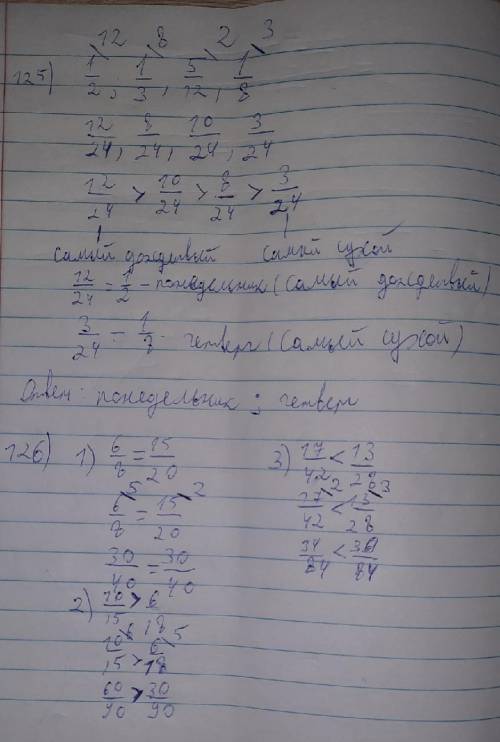 12 8 2 3
125) 1/2, 1/3, 5/12, 1/8
12/24, 8/24, 10/24, 3/24
12/24 > 10/24 > 8/24 > 3/24
самый дождевый самый сухой
12/24 = 1/2 - понедельник (самый дождевый)
3/24 = 1/8 - четверг (самый сухой)
Ответ: понедельник; четверг
126) 1) 6/8 = 15/20
5 2
6/8 = 15/20
30/40 = 30/40
2) 10/15 > 6/18
6 5
10/15 > 6/18
60/90 > 30/90
3) 17/42 < 13/28
2 3
17/42 < 13/28
34/84 < 39/84